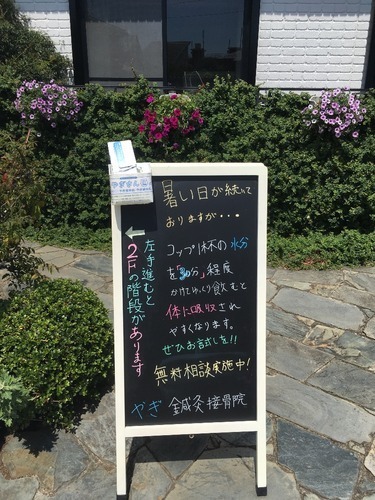 暑い日が続いて
おりますが・・・
コップ1杯の水分
を「30分」程度
かけてゆっくり飲むと
体に吸収され
やすくなります。
ぜひお試しを!!
無料相談実施中!
やぎ 鍼灸接骨院
←
左手進むと
2Fの階段があります